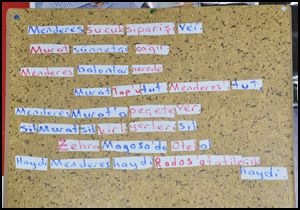 Menderes sucuk siparişi ver.
Murat sünnetçi çağır
Menderes balonlar nerede
Murat Topu tut Menderes tut.
Menderes Murat'a peçete ver.
Sil Murat sil kirli yerleri sil
Zehra Magosa da Otel a
Haydi Menderes haydi Rodos a tatile
haydi.